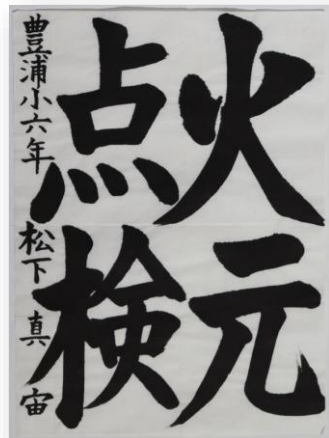 火元
点検
豊浦小六年 松下真宙